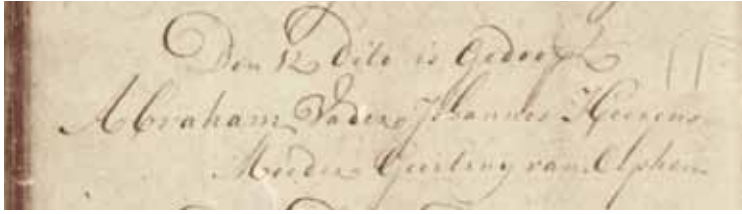 Den 12 dito is Gedoopt
Abraham Vader Johannes Heezens
Moeder Geertruy van Elphen